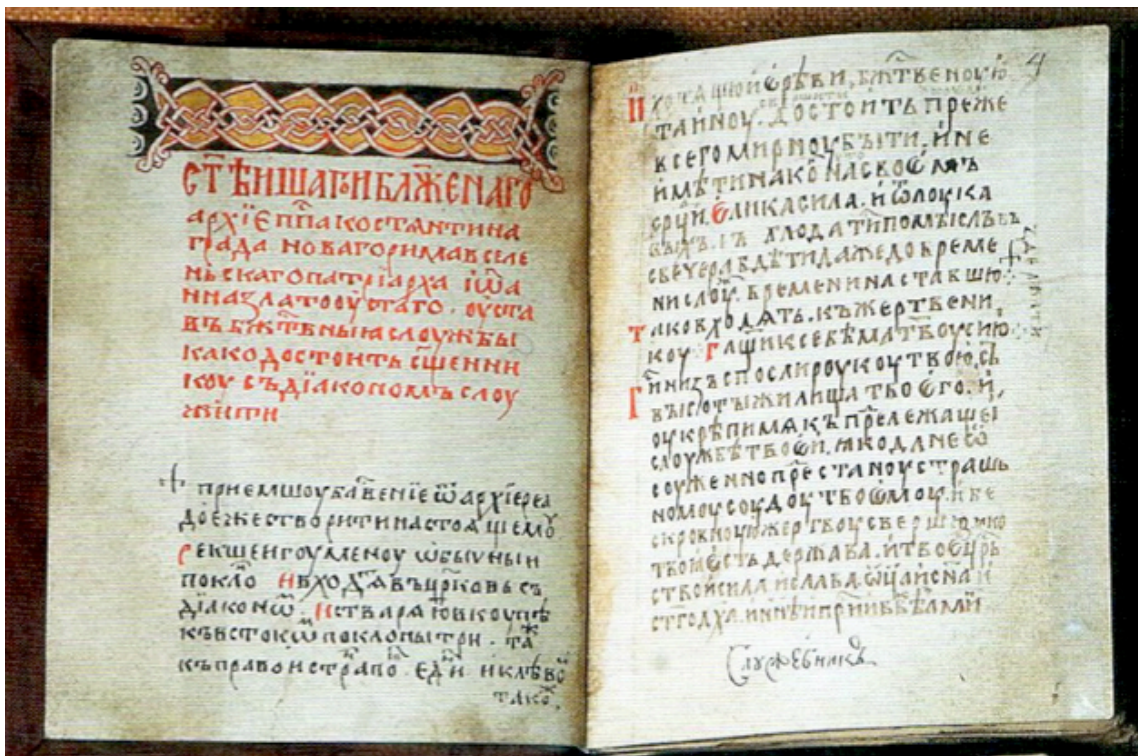 СТ҃ѢИШАГѠ И БЛАЖЕНАГО
АРХІЕПП҃А КОСТѦНТИНА
ГРАДА НОВАГО РИМА ВСЕЛЕ
НЬСКАГО ПАТРІАРХА ІѠА
ННА ЗЛАТООУСТАГО. ОУСТА
ВЪ БЖ҃ТВЬНЫѦ СЛОУЖБЫ
КАКО ДОСТОИТЬ СЩ҃ЕННИ
КОУ СЪ ДІАКОНОМЪ СЛОУ
ЖИТИ
ПРИЕМШОУ БЛ҃ВЕНІЕ Ѿ АРХІЕРЕА
ДО ЕЖЕ СТВОРИТИ НАСТОѦЩЕМОУ
РЕКШЕ ИГОУМЕНОУ ѠБЫЧНЫИ
ПОКЛО И ВХОДѦ ВЪ ЦР҃КОВЬ СЪ
ДІАКОНѠ. И СТВАРѦЮ ВКОУПѢ
КЪ ВСТОКѠ ПОКЛОНЫ ТРИ. ТАЖ
КЪ ПРАВОИ СТРАНѢ ЕДИ И К ЛѢВО
ТАКО
4
ХОТѦЩЮ ІЕРѢВИ, БЖ҃ТВЕНОУЮ
ТАИНОУ. ДОСТОИТЬ ПРЕЖЕ
ВСЕГО МИРНОУ БЫТИ. И НЕ
ИМѢТИ НА КО НА СВОЕМЪ
СРЦ҃И. ЕЛИКА СИЛА. И Ѿ ЛОУКА
ВЫХЪ. БЛЮДАТИ ПОМЫСЛЪ
С ВЕЧЕРА БДѢТИ ДАЖЕ ДО ВРЕМЕ
НИ СЛОУ. ВРЕМЕНИ НАСТАВШЮ
ТАКО ВХОДѦТЬ. КЪ ЖЕРТВЕНИ,
КОУ. ГЛЩ҃И К СЕБѢ МЛ҃ТВОУ СИЮ
ГИ НИЗЪСПОСЛИ РОУКОУ ТВОЮ, СЪ
ВЫСОТЫ ЖИЛИЩА ТВОЕГО. И,
ОУКРѢПИ МѦ КЪ ПРЕЛЕЖАЩЕИ
СЛОУЖБѢ ТВОЕИ. ѦКО ДА НЕѠ
СОУЖЕННО ПРЕСТАНОУ СТРАШЬ
НОМОУ СОУДОУ ТВОЕМОУ. И БЕ
СКРОВНОУЮ ЖЕРТВОУ СВЕРШЮ ѦКО
ТВОѦ ЕСТЬ ДЕРЖАВА. И ТВОЕ ЦР҃Ь
СТВО И СИЛА И СЛАВА. ѠЦА И СН҃А И
СТ҃ГО ДХ҃А. И НН҃Ѣ И ПР҃НО И В ВѢ
Служебникъ